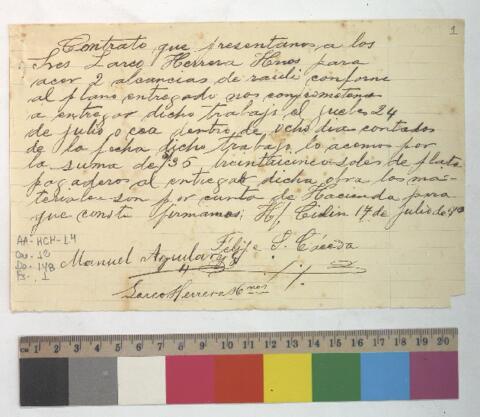 1
Contrato que presentamos a los
Sres Larco Herrera Hnos para
acer 2 alcancias de raili conforme
al plano entregado nos comprometemos
a entregar dicho trabajo el jueves 24
de julio o cea dentro de ocho dia contados
de la fecha dicho trabajo lo acemos por
la suma de $35 treintaicinco soles de plata
pagadero al entregar dicha obra los ma-
teriales son por cuenta de Hacienda para
que conste firmamos H/ Chiclin 17 de Julio de
AA-HCH-L4
Co. 12
Do. 148
Fs. 1
Manuel Aguilar Felipe S.
Larco Herrera Hnos
CM 1 2 3 4 5 6 7 8 9 10 11 12 13 14 15 16 17 18 19 20